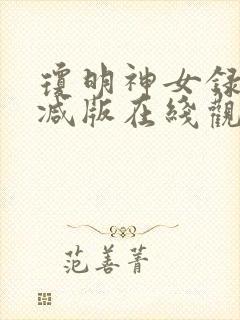 瓊明神女録
减版在綫觀
范善菁